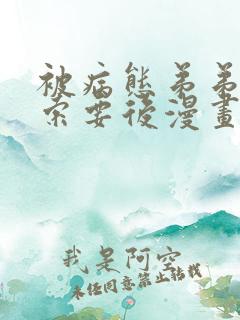 被病態弟弟
索要後漫畫
我是阿空
未经同意禁止转载